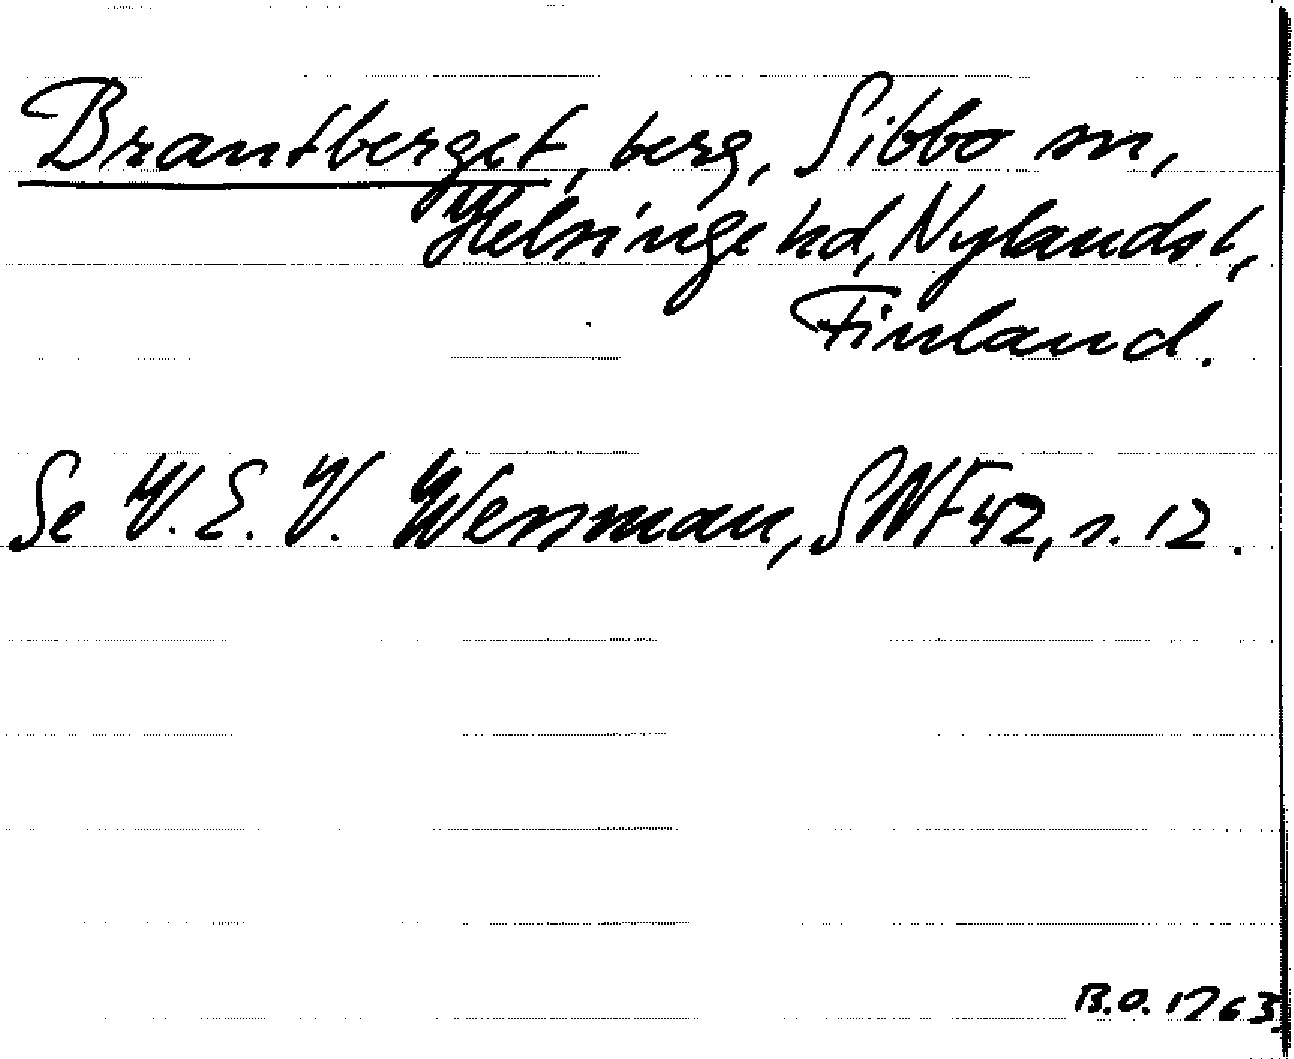 Brantberget, berg, Sibbo sn,
Helsinge hd, Nylands l,
Finland.
Se V. E. V. Wessman, SNF 42, s. 12.
B.O. 1763